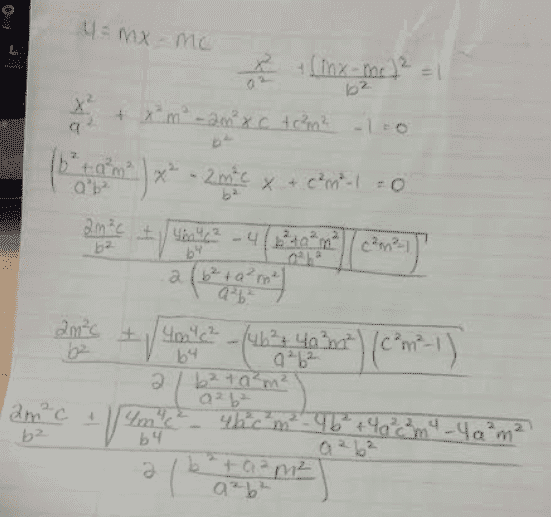 y = mx - mc
x²/a² + (mx-mc)²/b² = 1
x²/a² + (x²m² - 2m²xc + c²m²)/b² - 1 = 0
((b² + a²m²)/(a²b²)) x² - (2m²c/b²) x + c²m² - 1 = 0
(2m²c/b² ± √(4m⁴c²/b⁴ - 4((b² + a²m²)/(a²b²))(c²m² - 1))) / (2((b² + a²m²)/(a²b²)))
(2m²c/b² ± √(4m⁴c²/b⁴ - ((4b² + 4a²m²)/(a²b²))(c²m² - 1))) / (2((b² + a²m²)/(a²b²)))
(2m²c/b² ± √(4m⁴c²/b⁴ - (4b²c²m² - 4b² + 4a²c²m⁴ - 4a²m²)/(a²b²))) / (2((b² + a²m²)/(a²b²)))